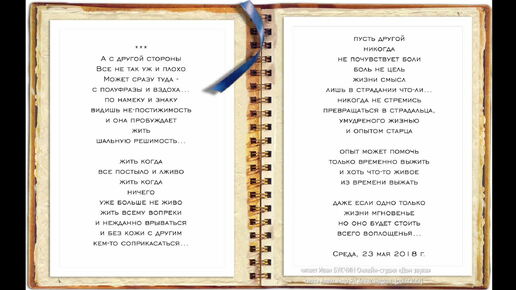 ***
А с другой стороны
Все не так уж и плохо
Может сразу туда -
с полуфразы и вздоха...
по намеку и знаку
видишь не-постижимость
и она пробуждает
жить
шальную решимость...
жить когда
все постыло и лживо
жить когда
ничего
уже больше не живо
жить всему вопреки
и нежданно врываться
и без кожи с другим
кем-то соприкасаться...
пусть другой
никогда
не почувствует боли
боль не цель
жизни смысл
лишь в страдании что-ли...
никогда не стремись
превращаться в страдальца,
умудреного жизнью
и опытом старца
опыт может помочь
только временно выжить
и хоть что-то живое
из времени выжать
даже если одно только
жизни мгновенье
но оно будет стоить
всего воплощенья...
Среда, 23 мая 2018 г.
читает Иван БУКЧИН Онлайн-студия «Дом звука»